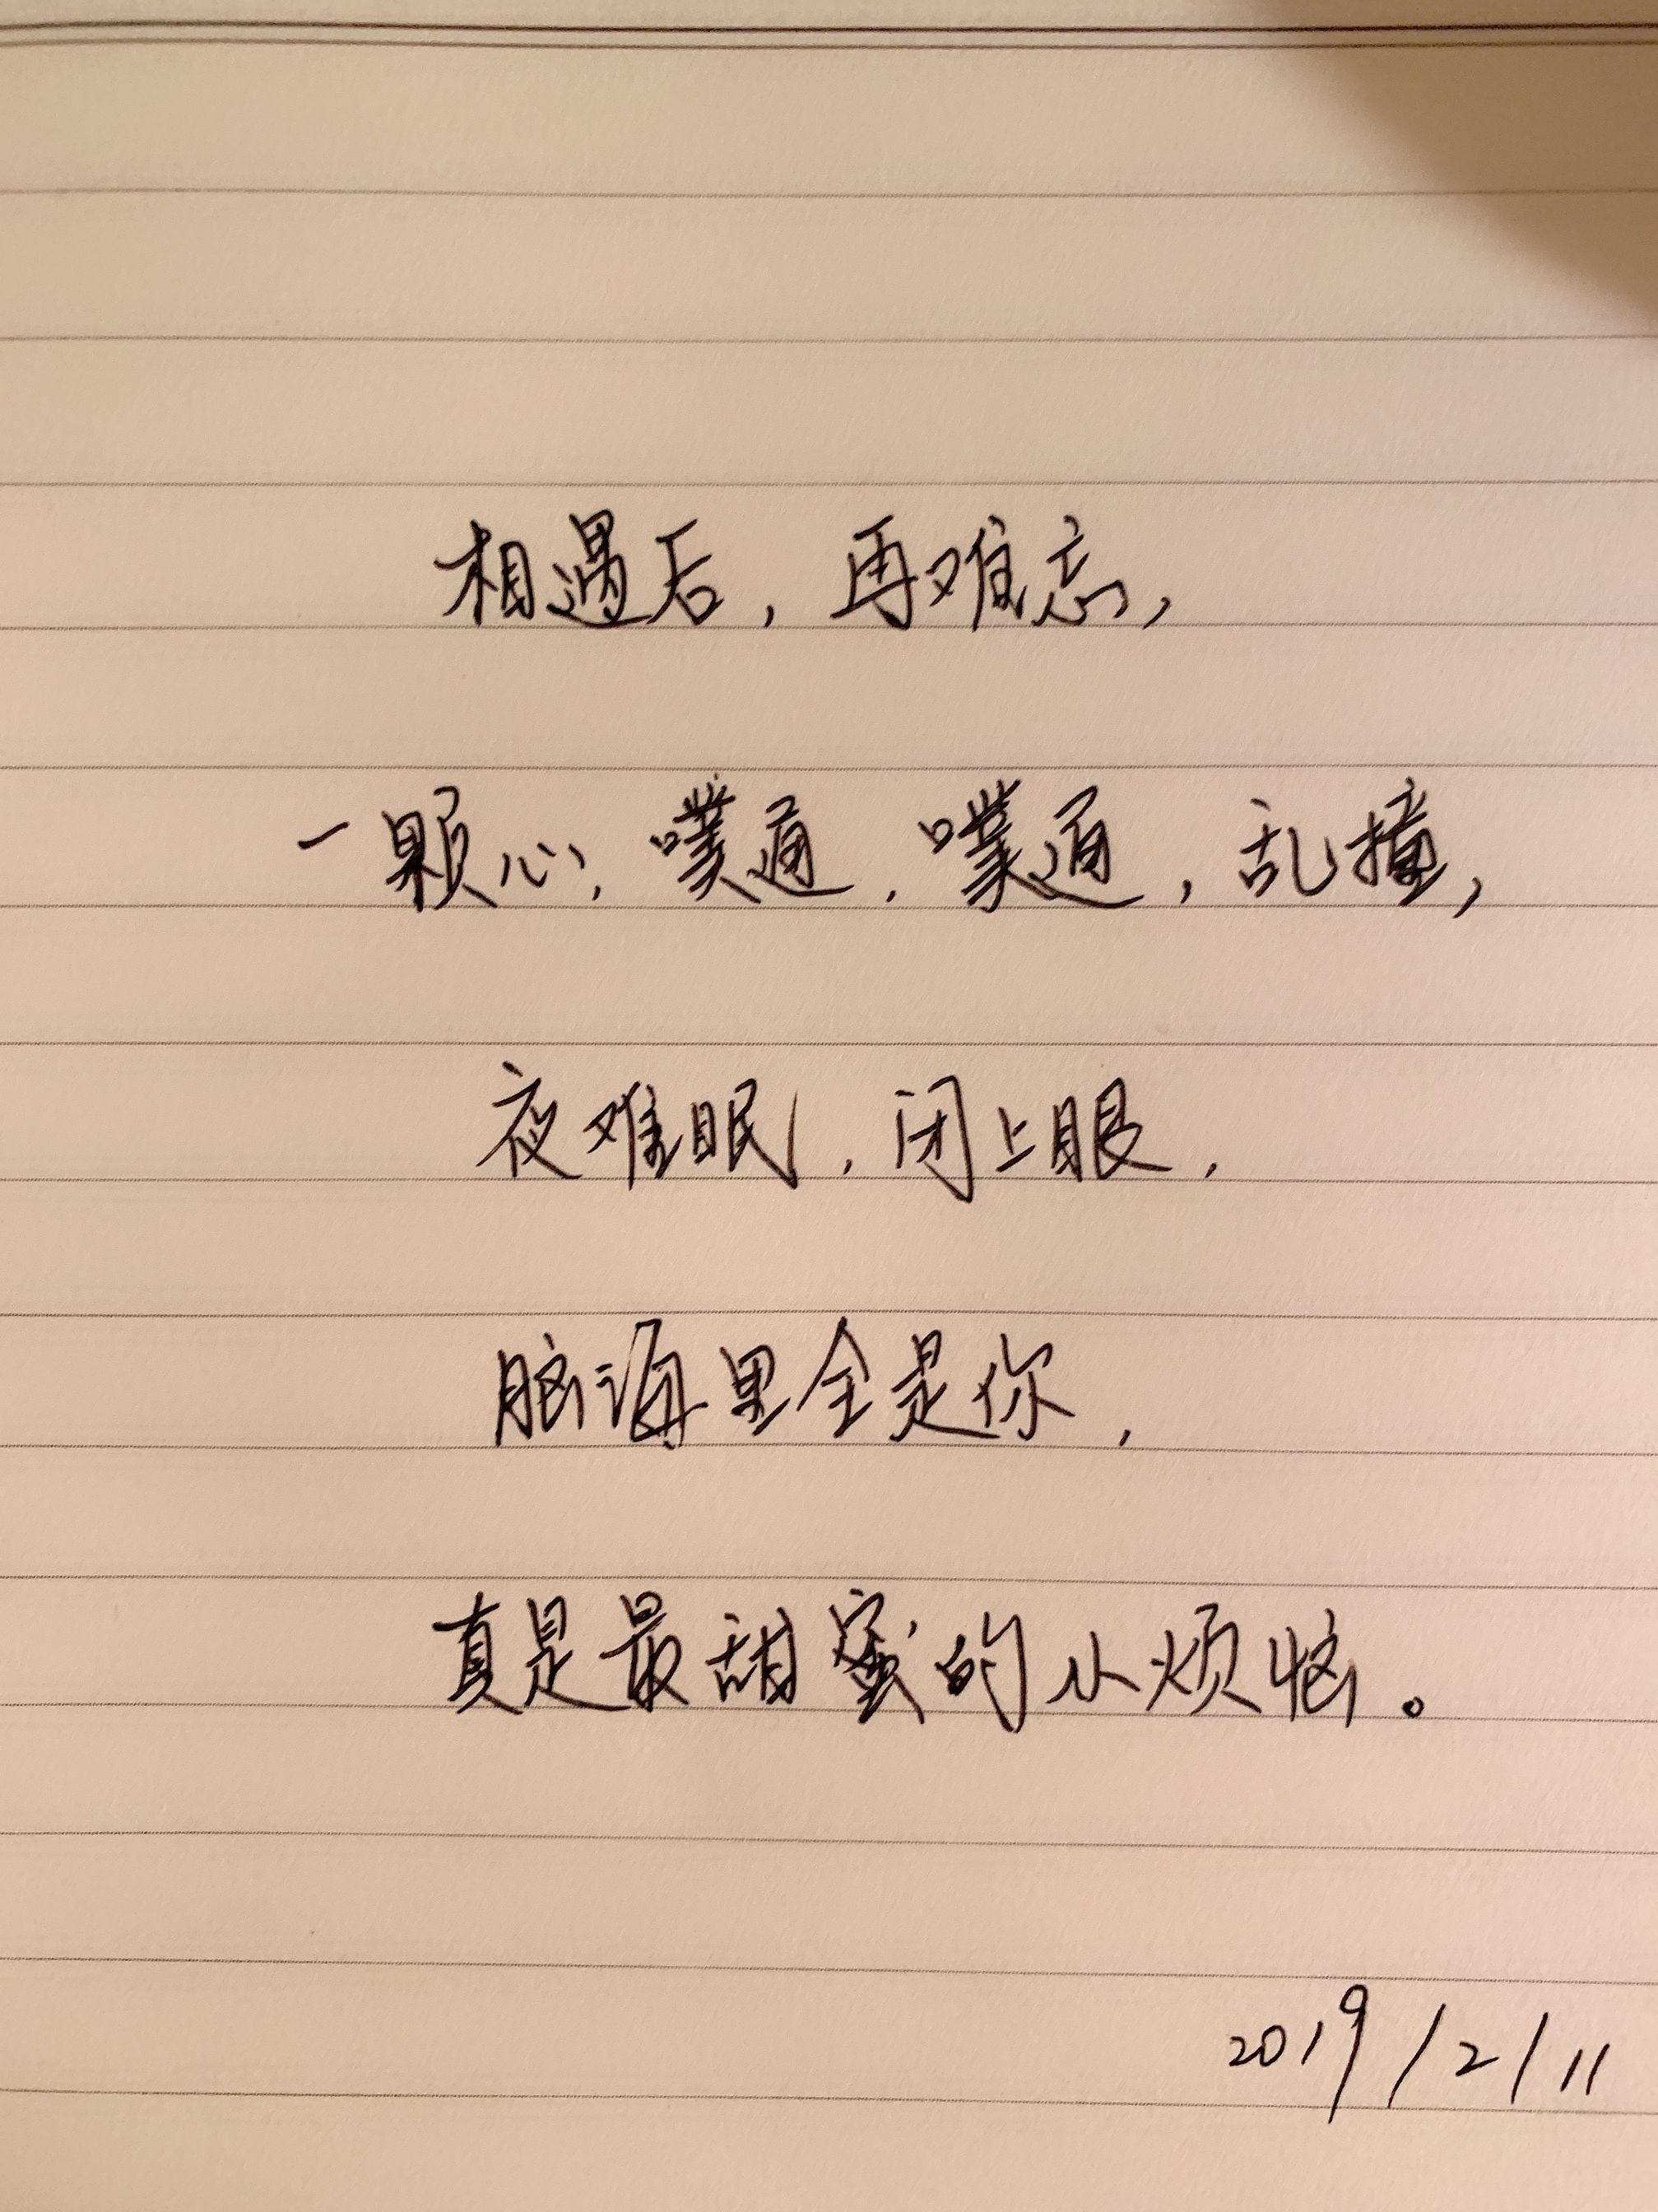 相遇后，再难忘，
一颗心，噗通，噗通，乱撞，
夜难眠，闭上眼，
脑海里全是你，
真是最甜蜜的小烦恼。
2019/2/11